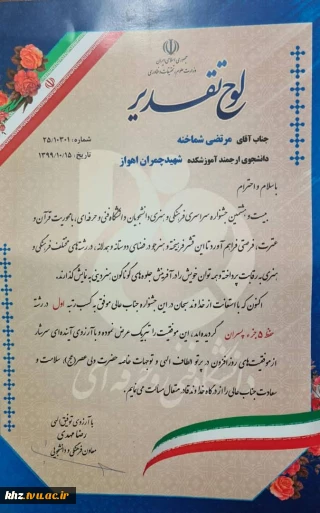 جمهوری اسلامی ایران
وزارت علوم، تحقیقات و فناوری
لوح تقدیر
شماره: ۲۵/۱۰۳۰۱
جناب آقای مرتضی شماخنه
تاریخ: ۱۳۹۹/۱۰/۱۵
دانشجوی ارجمند آموزشکده شهیدچمران اهواز
با سلام و احترام
بیست و هشتمین جشنواره سراسری فرهنگی و هنری دانشجویان دانشگاه فنی و حرفه‌ای، با محوریت قرآن و
عترت، فرصتی فراهم آورد تا این قشر فرهیخته و هنرجو در فضای دوستانه و همدلانه، در رشته‌های مختلف فرهنگی و
هنری به رقابت پرداخته و همه توان خویش را در آفرینش جلوه‌های گوناگون هنر دینی به نمایش گذارند.
اکنون که با استعانت از خداوند سبحان در این جشنواره جناب عالی موفق به کسب رتبه اول در رشته
حفظ ۵ جزء پسران گردیده‌اید، این موفقیت را تبریک عرض نموده و با آرزوی آینده‌ای سرشار
از موفقیت‌های روزافزون در پرتو الطاف الهی و توجهات خاصه حضرت ولی عصر(عج)، سلامت و
سعادت جناب عالی را از درگاه خداوند قادر متعال مسالت می‌نمایم.
با آرزوی توفیق الهی
رضا مهدی
معاون فرهنگی و دانشجویی
khz.tvu.ac.ir